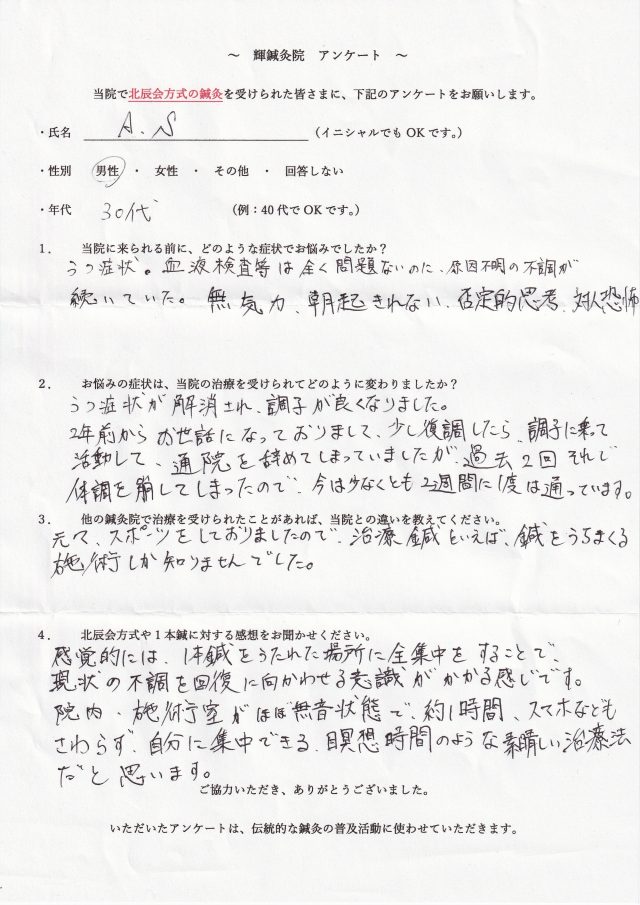 ～ 輝鍼灸院 アンケート ～
当院で北辰会方式の鍼灸を受けられた皆さまに、下記のアンケートをお願いします。
・氏名 A.S (イニシャルでもOKです。)
・性別 男性 ・ 女性 ・ その他 ・ 回答しない
・年代 30代 (例：40代でOKです。)
1. 当院に来られる前に、どのような症状でお悩みでしたか？
うつ症状。血液検査等は全く問題ないのに、原因不明の不調が
続いていた。無気力、朝起きれない、否定的思考、対人恐怖
2. お悩みの症状は、当院の治療を受けられてどのように変わりましたか？
うつ症状が解消され、調子が良くなりました。
2年前からお世話になっておりまして、少し復調したら、調子に乗って
活動して、通院を辞めてしまっていましたが、過去2回それで
体調を崩してしまったので、今は少なくとも2週間に1度は通っています。
3. 他の鍼灸院で治療を受けられたことがあれば、当院との違いを教えてください。
元々、スポーツをしておりましたので、治療鍼といえば、鍼をうちまくる
施術しか知りませんでした。
4. 北辰会方式や1本鍼に対する感想をお聞かせください。
感覚的には、1本鍼をうたれた場所に全集中をすることで、
現状の不調を回復に向かわせる意識がかかる感じです。
院内・施術室がほぼ無音状態で、約1時間、スマホなども
さわらず、自分に集中できる、瞑想時間のような素晴しい治療法
だと思います。
ご協力いただき、ありがとうございました。
いただいたアンケートは、伝統的な鍼灸の普及活動に使わせていただきます。